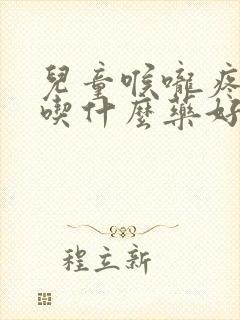 兒童喉嚨疼
喫什麼藥好
程立新